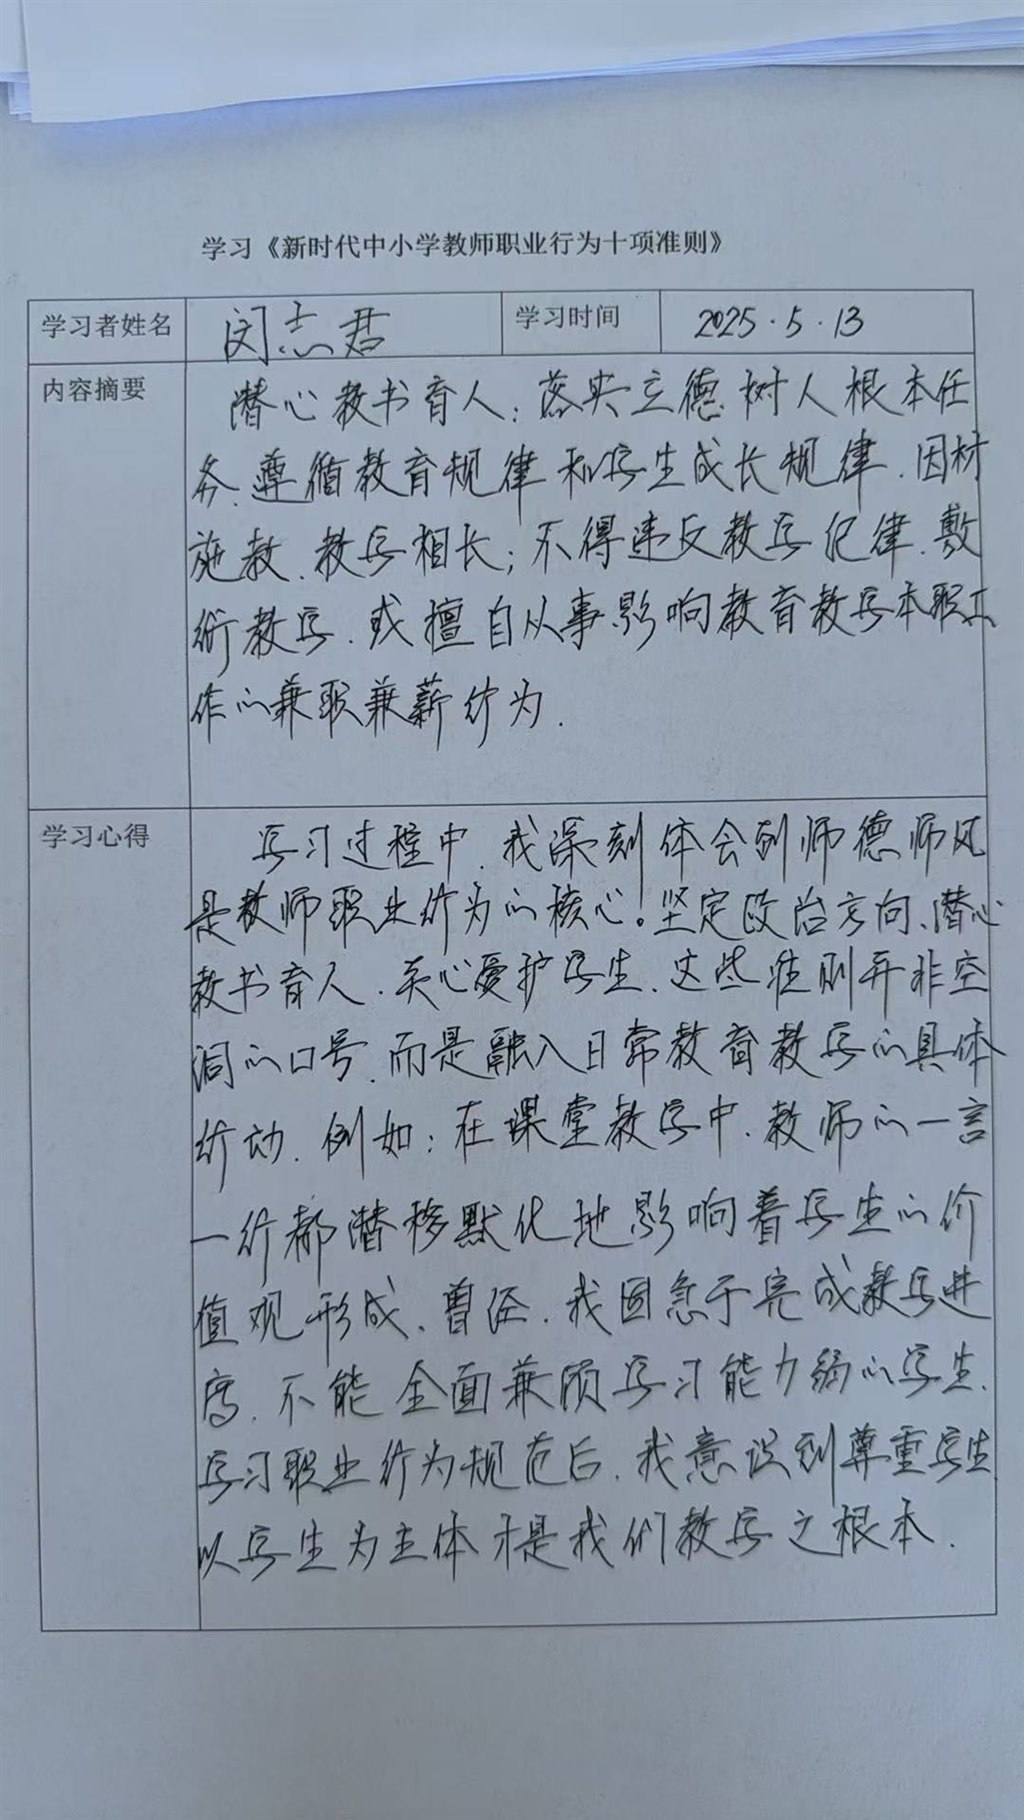 学习《新时代中小学教师职业行为十项准则》
学习者姓名 闵志君 学习时间 2025.5.13
内容摘要
潜心教书育人:落实立德树人根本任
务.遵循教育规律和学生成长规律.因材
施教.教学相长;不得违反教学纪律.敷
衍教学.或擅自从事影响教育教学本职工
作的兼职兼薪行为.
学习心得
学习过程中.我深刻体会到师德师风
是教师职业行为的核心。坚定政治方向、潜心
教书育人.关心爱护学生.这些准则并非空
洞的口号.而是融入日常教育教学的具体
行动.例如:在课堂教学中.教师的一言
一行都潜移默化地影响着学生的价
值观形成.曾经.我因急于完成教学进
度.不能全面兼顾学习能力弱的学生.
学习职业行为规范后.我意识到尊重学生
以学生为主体才是我们教学之根本.